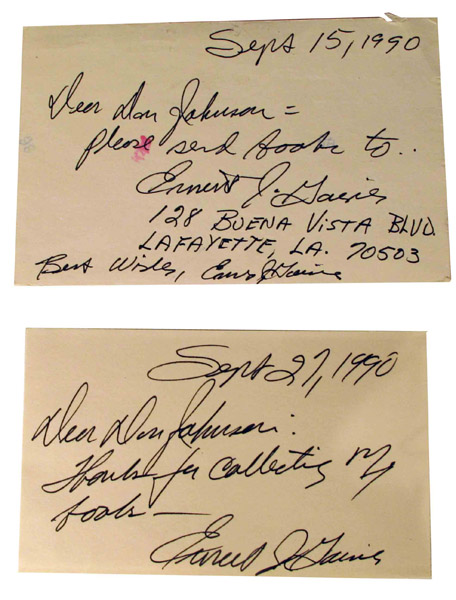 Sept 15, 1990
Dear Don Johnson =
please send books to..
Ernest J. Gaines
128 BUENA VISTA BLVD
LAFAYETTE, LA. 70503
Best Wishes, Ernest J. Gaines
Sept 27, 1990
Dear Don Johnson:
Thanks for collecting my
books —
Ernest J. Gaines